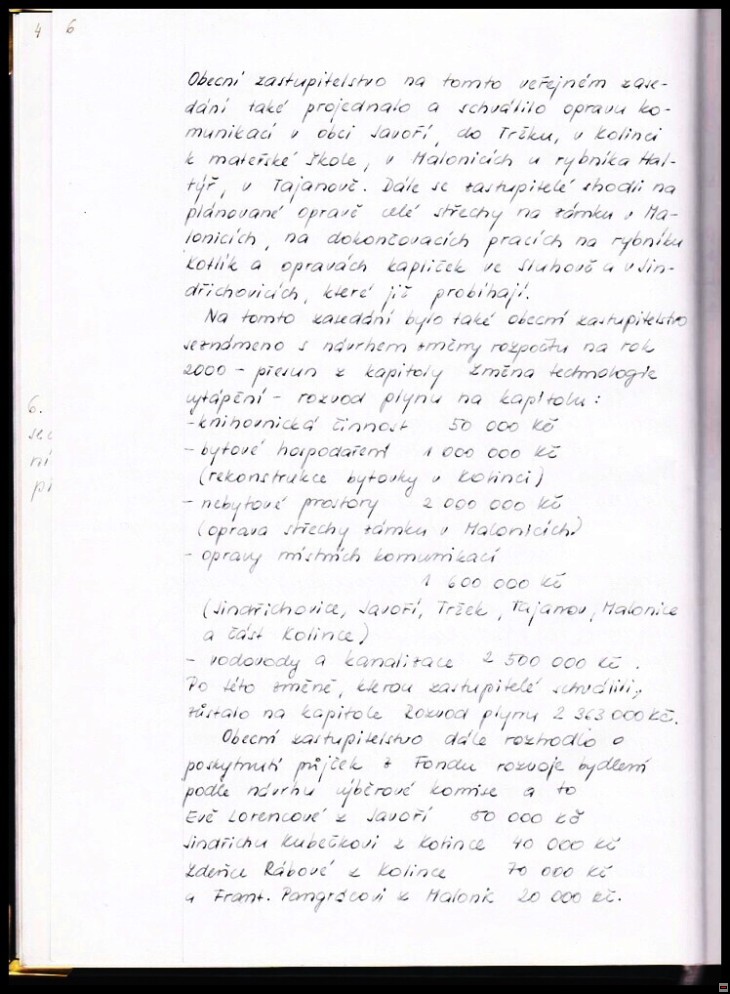 4 6
Obecní zastupitelstvo na tomto veřejném zase-
dání také projednalo a schválilo opravu ko-
munikací v obci Javoří, do Tržku, v Kolinci
k mateřské škole, v Malonicích u rybníka Hal-
týř, v Tajanově. Dále se zastupitelé shodli na
plánované opravě celé střechy na zámku v Ma-
lonicích, na dokončovacích pracích na rybníku
Kotlík a opravách kapliček ve Sluhově a v Jin-
dřichovicích, které již probíhají.
Na tomto zasedání bylo také obecní zastupitelstvo
seznámeno s návrhem změny rozpočtu na rok
2000 - přesun z kapitoly Změna technologie
vytápění - rozvod plynu na kapitolu:
- knihovnická činnost 50 000 Kč
- bytové hospodaření 1 000 000 Kč
(rekonstrukce bytovky v Kolinci)
- nebytové prostory 2 000 000 Kč
(oprava střechy zámku v Malonicích)
- opravy místních komunikací
1 600 000 Kč
(Jindřichovice, Javoří, Tržek, Tajanov, Malonice
a část Kolince)
- vodovody a kanalizace 2 500 000 Kč.
Po této změně, kterou zastupitelé schválili,
zůstalo na kapitole Rozvod plynu 2 363 000 Kč.
Obecní zastupitelstvo dále rozhodlo o
poskytnutí půjček z Fondu rozvoje bydlení
podle návrhu výběrové komise a to
Evě Lorencové z Javoří 50 000 Kč
Jindřichu Kubečkovi z Kolince 40 000 Kč
Zdeňce Rábové z Kolince 70 000 Kč
a Frant. Pangrácovi z Malonic 20 000 Kč.
6.
ní